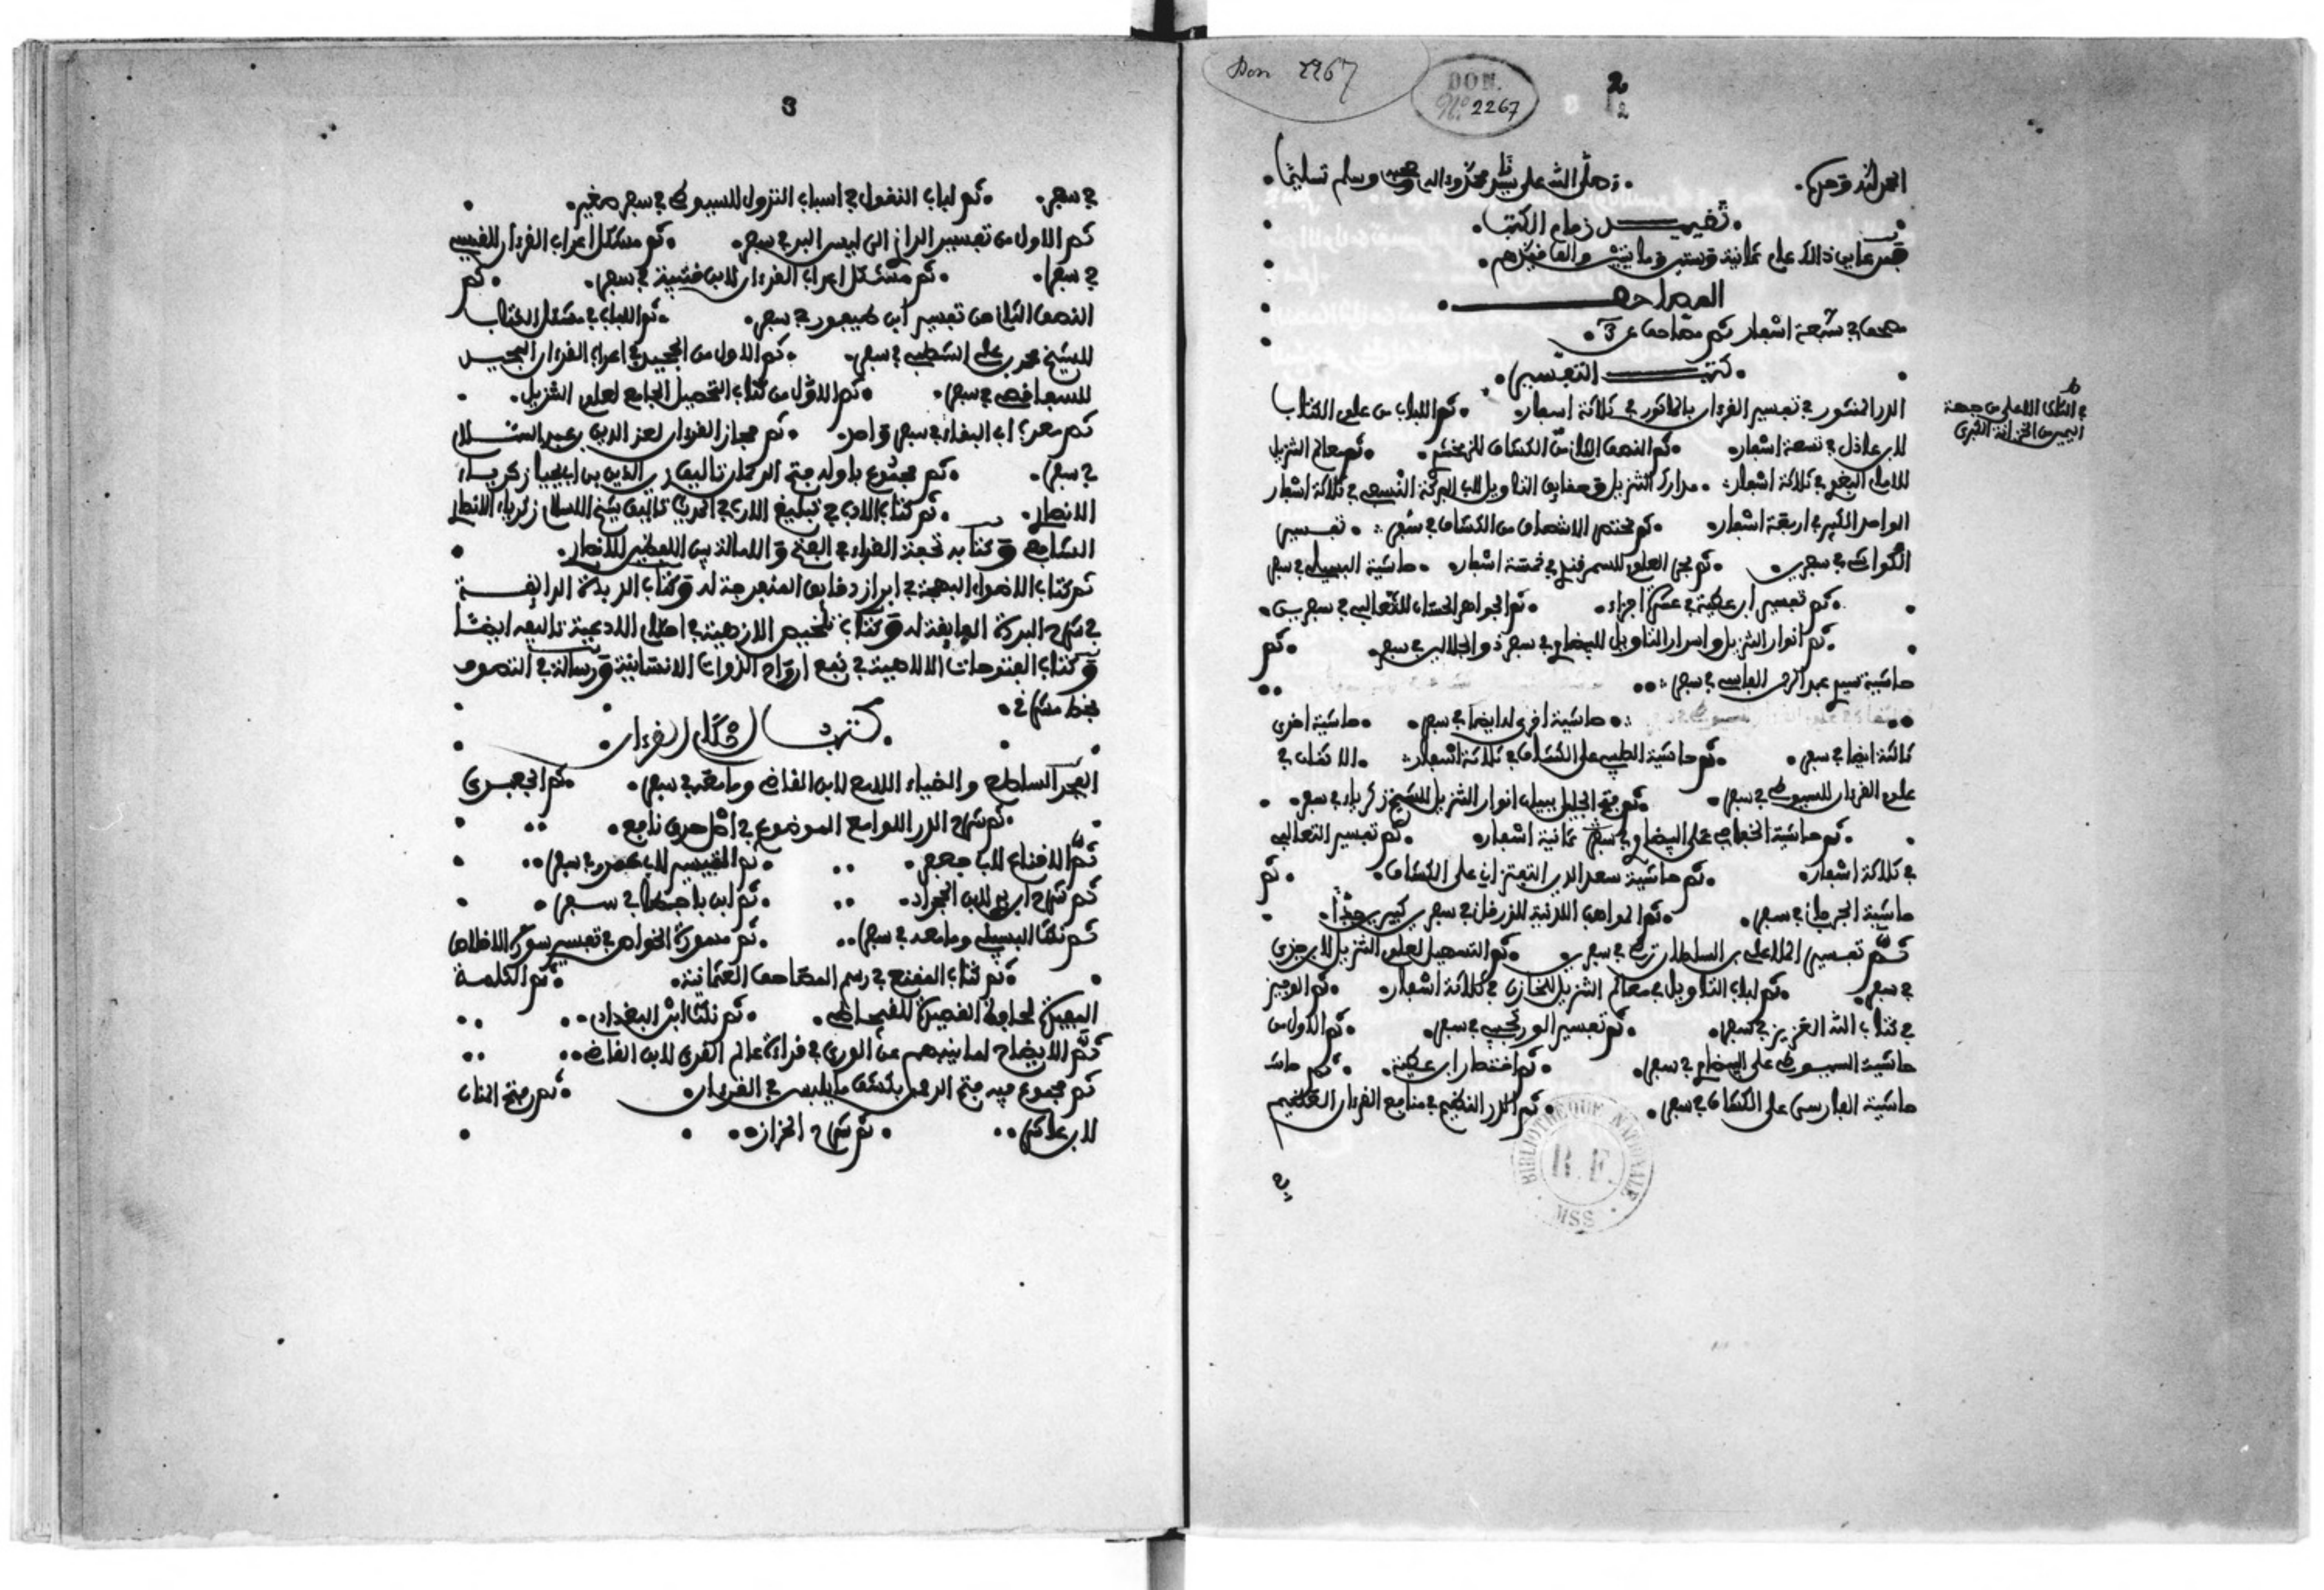 Don 2267
DON.
N.º 2267
2
2
الحمد لله وحده. وصلى الله على سيدنا محمد وءاله وصحبه وسلم تسليما.
تقييـــد زمام الكتب.
قيد عام ثمانية وستين ومايتين والف
المصاحف
مصحف في سبعة اسفار ثم مصاحف عدد 3.
كتب التفسير.
الدر المنثور في تفسير القرءان بالماثور في ثلاثة اسفار. ثم اللباب من علوم الكتاب
لابن عادل في تسعة اسفار. ثم النصف الثاني من الكشاف للزمخشري. ثم معالم التنزيل
للامام البغوي في ثلاثة اسفار. مدارك التنزيل وحقايق التاويل لابي البركات النسفي في ثلاثة اسفار
الواحدي الكبير في اربعة اسفار. ثم مختصر الانصاف من الكشاف في سفر. تفسير
الكواشي في سفرين. ثم بحر العلوم للسمرقندي في خمسة اسفار. حاشية البسيلي في سفر
ثم تفسير ابن عطية في عشرة اجزاء. ثم الجواهر الحسان للثعالبي في سفرين.
ثم انوار التنزيل واسرار التاويل للبيضاوي في سفر ذو الجلالين في سفر. ثم
حاشية سيدي عبد الرحمن الفاسي في سفر.
حاشية اخرى له ايضا في سفر. حاشية اخرى
ثالثة ايضا في سفر. ثم حاشية الطيبي على الكشاف في ثلاثة اسفار. الاتقان في
علوم القرءان للسيوطي في سفر. ثم فتح الجليل ببيان انوار التنزيل للشيخ زكرياء في سفر.
ثم حاشية الخفاجي على البيضاوي في ثمانية اسفار. ثم تفسير الثعالبي
في ثلاثة اسفار. ثم حاشية سعد الدين التفتزاني على الكشاف. ثم
حاشية الجرجاني في سفر. ثم المواهب اللدنية للزرقاني في سفر كبير جدا.
ثم تفسير الملا علي بن السلطان تركي في سفرين. ثم التسهيل لعلوم التنزيل لابن جزي
في سفر. ثم لباب التاويل في معالم التنزيل للخازن في ثلاثة اسفار. ثم الوجيز
في كتاب الله العزيز في سفر. ثم تفسير الورتجبي في سفر. ثم الاول من
حاشية السيوطي على البيضاوي في سفر. ثم اختصار ابن عطية. ثم حاشـ
حاشية الفارسي على الكشاف في سفر. ثم الدر النظيم في منافع القرءان العظيم
في
في الطاق الاعلى من جهة
اليمين من الخزانة الكبرى
BIBLIOTHEQUE NATIONALE
R. F.
MSS
3
في سفر. ثم لباب النقول في اسباب النزول للسيوطي في سفر صغير.
ثم الاول من تفسير الرازي الى ليس البر في سفر. ثم مشكل اعراب القرءان للقيسي
في سفر. ثم مشكل اعراب القرءان لابن قتيبة في سفر. ثم
النصف الثاني من تفسير ابن عصفور في سفر. ثم اللباب في مشكل الكتاب
للشيخ محمد بن علي الشطيبي في سفر. ثم الاول من المجيد في اعراب القرءان المجيد
للسفاقصي في سفر. ثم الاول من كتاب التحصيل الجامع لعلوم التنزيل.
ثم معرب ابي البقاء في سفر واحد. ثم مجاز القرءان لعز الدين بن عبد السلام
في سفر. ثم مجموع باوله فتح الرحمان تاليف زين الدين بن ابي يحيى زكرياء
الانصاري. ثم كتاب الادب في تبليغ الارب تاليف شيخ الاسلام زكرياء الانصاري
الشافعي وكتابه تحفة القراء في الفتح والامالة بين اللفظين للانصاري.
ثم كتاب الاضواء البهجة في ابراز دقايق المنفرجة له وكتاب الزبدة الرايقة
في شرح البردة الفايقة له وكتاب تلخيص الازهية في احكام الادعية تاليفه ايضا
وكتاب الفتوحات الالاهية في نفع ارواح الذوات الانسانية ورسالة في التصوف
بخط مشرقي.
كتب اشكال القرءان.
الفجر الساطع والضياء اللامع لابن القاضي وما معه في سفر. ثم الجعبري
ثم شرح الدرر اللوامع الموضوع في اصل حرف نافع.
ثم الاقناع لابي جعفر. ثم التيسير لابي عمرو في سفر.
ثم شرح ابن بري لابن المجراد. ثم ابن باجطا في سفر.
ثم نكت البسيلي وما معه في سفر. ثم منصورة الخواص في تفسير سورة الاخلاص
ثم كتاب المقنع في رسم المصاحف العثمانية. ثم التكلمة
المفيدة لحافظ القصيدة للقيجاطي. ثم نكت ابن البغدادي.
ثم الايضاح لما ينبهم عن الورى في قراءة عالم القرى لابن القاضي.
ثم مجموع فيه فتح الرحمن بكشف ما يلبس في القرءان. ثم فتح المنان
لابن عاشر. ثم شرح الخراز.